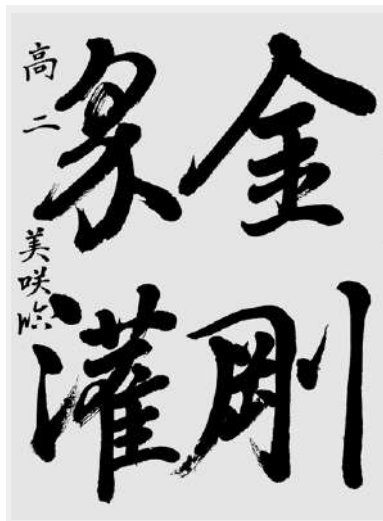 金剛
界灌
高二 美咲臨